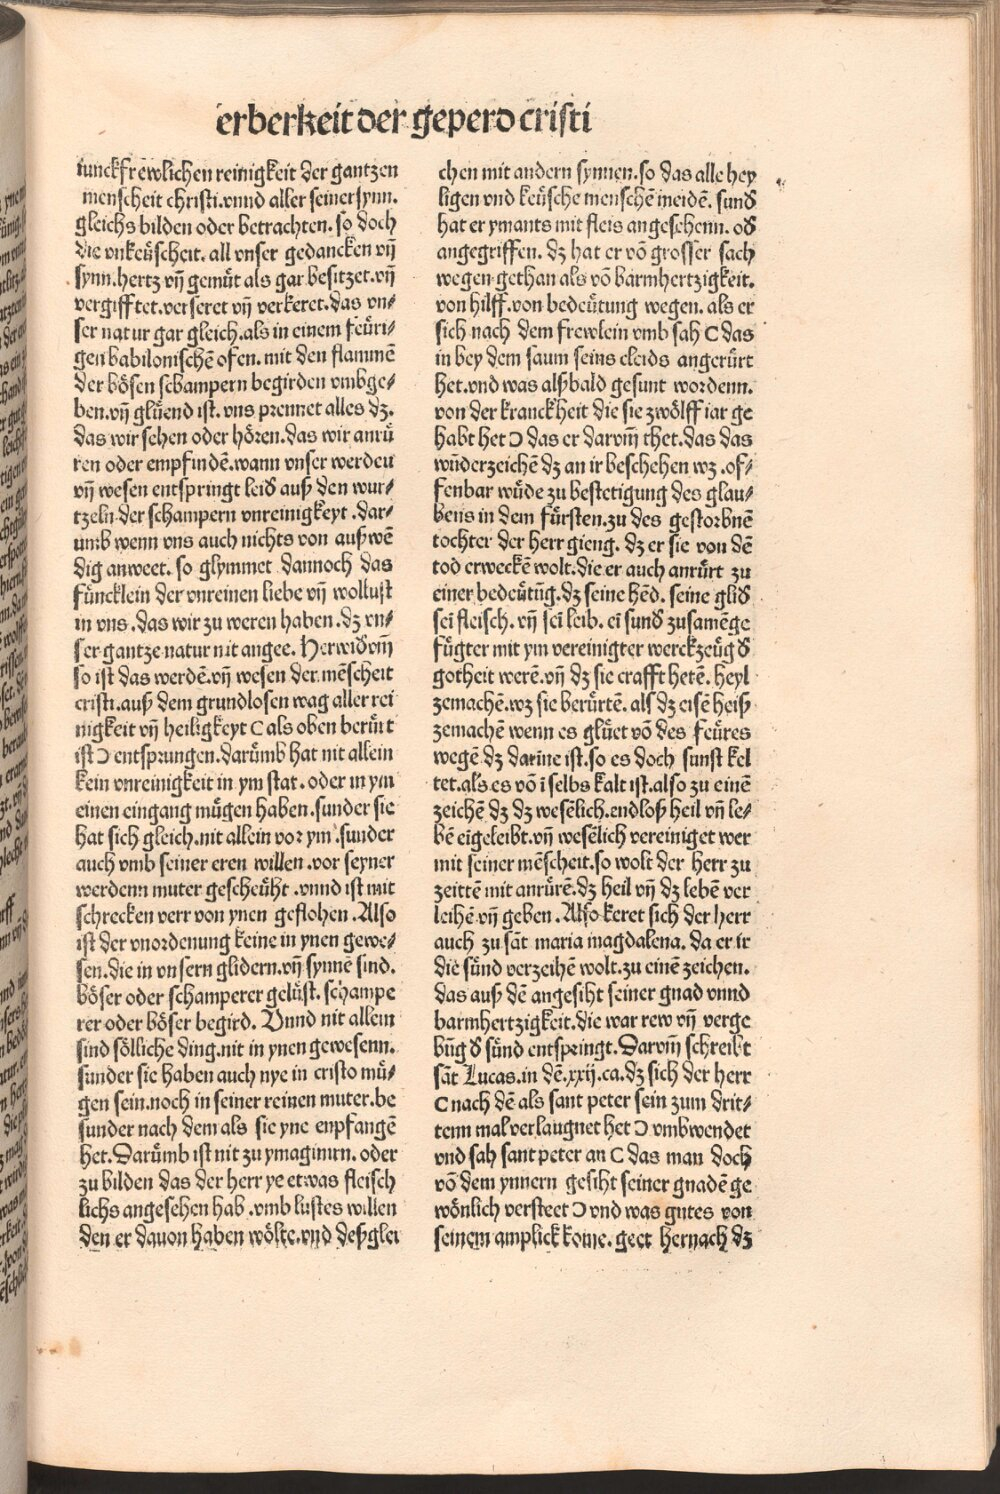 erberkeit der geperd cristi
iunckfrewlichen reinigkeit der gantzen
menscheit christi.vnnd aller seiner synn.
gleichs bilden oder betrachten. so doch
die vnkeüscheit. all vnser gedancken vñ
synn.hertz vñ gemüt als gar besitzet.vñ
vergifftet.verseret vñ verkeret.das vn⸗
ser natur gar gleich.als in einem feüri⸗
gen babilonischē ofen. mit den flammē
der bösen schampern begirden vmbge⸗
ben.vñ glüend ist. vns prennet alles dz.
das wir sehen oder hören.das wir anrü
ren oder empfindē.wann vnser werden
vñ wesen entspringt leid auß den wur⸗
tzeln.der schampern vnreinigkeyt .dar⸗
umb wenn vns auch nichts von außwē
dig anweet. so glymmet dannoch das
füncklein der vnreinen liebe vñ wollust
in vns .das wir zu weren haben.dz vn⸗
ser gantze natur nit angee. Herwidvm̄
so ist das werdē.vñ wesen der mēscheit
cristi.auß dem grundlosen wag aller rei
nigkeit vñ heiligkeyt C als oben berürt
ist Ɔ entsprungen.darümb hat nit allein
kein vnreinigkeit in ym stat. oder in ym
einen eingang mügen haben.sunder sie
hat sich gleich.nit allein vor ym .sunder
auch vmb seiner eren willen .vor seyner
werdenn muter gescheüht .vnnd ist mit
schrecken verr von ynen geflohen .Also
ist der vnordenung keine in ynen gewe⸗
sen.die in vnsern glidern.vñ synnē sind.
böser oder schamperer gelüst. schampe
rer oder böser begird. Vnnd nit allein
sind sölliche ding.nit in ynen gewesenn.
sunder sie haben auch nye in cristo mü⸗
gen sein.noch in seiner reinen muter.be
sunder nach dem als sie yne enpfangē
het.Darümb ist nit zu ymaginirn. oder
zu bilden das der herr ye etwas fleisch
lichs angesehen hab .vmb lustes willen
den er dauon haben wölte.vnd deßglei
chen mit andern synnen.so das alle hey
ligen vnd keüsche menschē meidē. sund
hat er ymants mit fleis angeschenn. od
angegriffen. dz hat er vō grosser sach
wegen gethan als vō barmhertzigkeit.
von hilff.von bedeütung wegen. als er
sich nach dem frewlein vmb sah C das
in bey dem saum seins cleids angerürt
het.vnd was alßbald gesunt wordenn.
von der kranckheit die sie zwölff iar ge
habt het Ɔ das er darvm̄ thet.das das
wūderzeichē dz an ir beschehen wz .of⸗
fenbar würde zu bestetigung des glau⸗
bens in dem fürsten.zu des gestorbnē
tochter der herr gieng. dz er sie von dē
tod erweckē wolt.die er auch anrürt zu
einer bedeütūg.dz seine hēd. seine glid
sei fleisch. vñ sei leib. ei sund zusamēge
fügter mit ym vereinigter werckzeüg d
gotheit werē.vñ dz sie crafft hetē. heyl
zemachē.wz sie berürtē. als dz eisē heiß
zemachē wenn es glüet vō des feüres
wegē dz darine ist.so es doch sunst kel
tet.als es vō ī selbs kalt ist.also zu einē
zeichē dz dz wesēlich.endloß heil vñ le⸗
bē eigeleibt.vñ wesēlich vereiniget wer
mit seiner mēscheit.so wolt der herr zu
zeittē mit anrürē.dz heil vñ dz lebē ver
leihē vñ geben .Also keret sich der herr
auch zu sāt maria magdalena. da er ir
die sünd verzeihē wolt.zu einē zeichen.
das auß dē angesiht seiner gnad vnnd
barmhertzigkeit.die war rew vñ verge
būg d sünd entspringt.Darvm̄ schreibt
sāt Lucas.in dē.xxij.ca.dz sich der herr
C nach dē als sant peter sein zum drit⸗
tenn mal verlaugnet het Ɔ vmbwendet
vnd sah sant peter an C das man doch
vō dem ynnern gesiht seiner gnadē ge
wönlich versteet Ɔ vnd was gutes von
seinem amplick kome. geet hernach dz